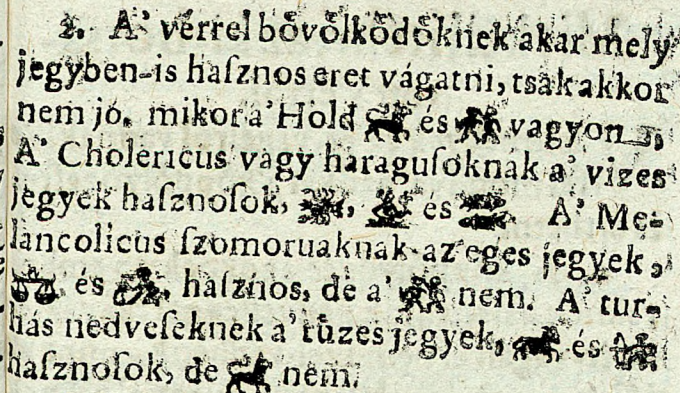 2. A' vérrel bövölködöknek akár mely
jegyben-is haſznos eret vágatni, tsak akkor
nem jó, mikor a' Hold ♌ és ♊ vagyon.
A' Cholericus vagy haraguſoknak a' vizes
jegyek haſznoſok, ♋, ♏ és ♓ A' Me-
lancolicus ſzomoruaknak az eges jegyek,
♎ és ♒ haſznos, de a' ♊ nem. A' tur-
hás nedveſeknek a' tüzes jegyek, ♈ és ♐
haſznoſok, de ♌ nem.